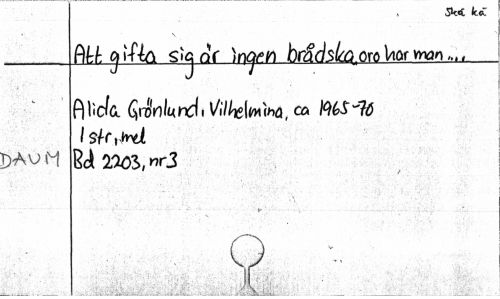 Skä kä
Att gifta sig är ingen brådska, oro har man...
Alida Grönlund, Vilhelmina, ca 1965-70
1 str, mel
DAUM Bd 2203, nr 3